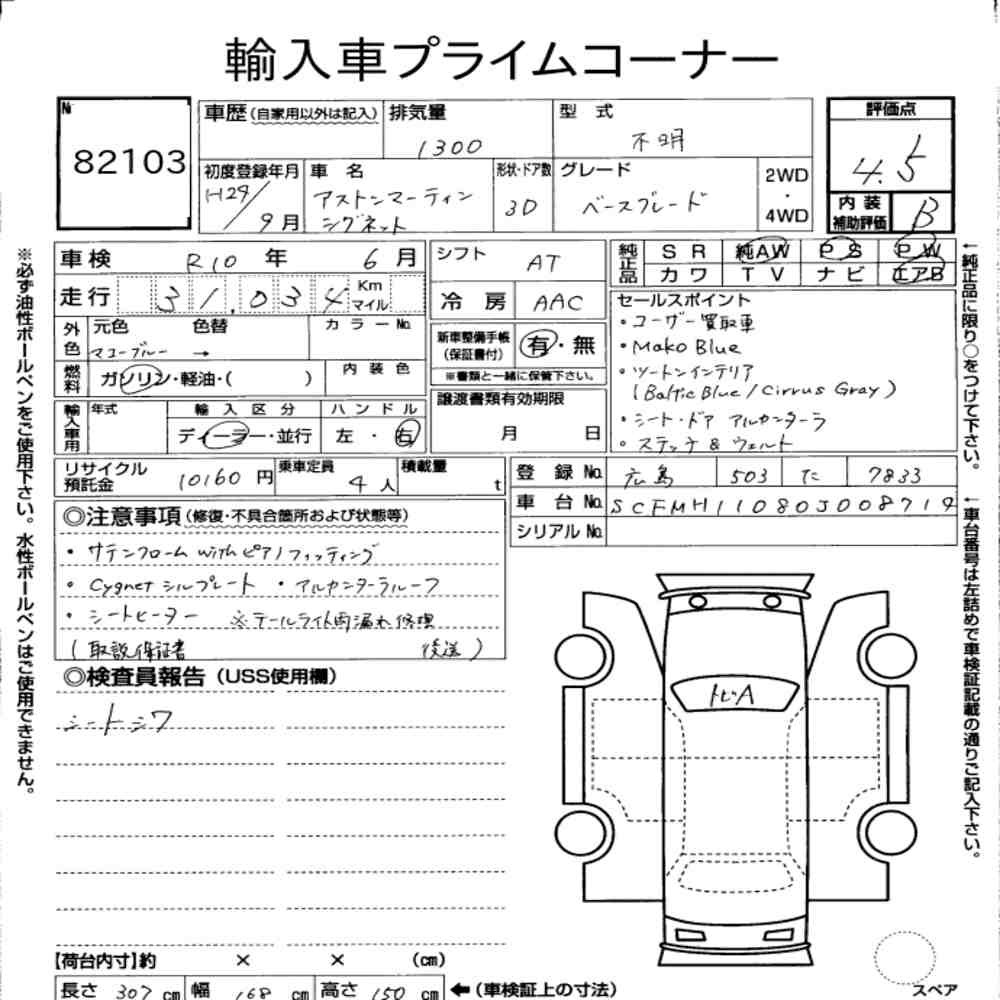 輸入車プライムコーナー
№ 82103
車歴(自家用以外は記入) 排気量 1300 型式 不明
評価点 4.5
初度登録年月 H29/9月 車名 アストンマーティン シグネット 形状・ドア数 3D グレード ベースグレード 2WD・4WD
内装補助評価 B
車検 R10年 6月 シフト AT 純正品 SR 純AW PS PW
カワ TV ナビ エアB
走行 31,034 Km マイル 冷房 AAC
セールスポイント
・ユーザー買取車
・Mako Blue
・ツートンインテリア
(Baltic Blue/Cirrus Gray)
・シート・ドア アルカンターラ
・ステッチ & ウェルト
外色 元色 色替 カラーNo.
マコーブルー →
新車整備手帳(保証書付) 有・無
※書類と一緒に保管下さい。
燃料 ガソリン・軽油・( ) 内装色
譲渡書類有効期限
月 日
輸入車用 年式 輸入区分 ハンドル
ディーラー・並行 左・右
リサイクル預託金 10160円 乗車定員 4人 積載量 t
登録No. 広島 503 た 7833
車台No. SCFMH11080J008719
シリアルNo.
◎注意事項(修復・不具合箇所および状態等)
・サテンクローム withピアノフィッティング
・Cygnet シルプレート ・アルカンターラルーフ
・シートヒーター ※テールライト雨漏れ修理
(取説保証書 後送)
◎検査員報告(USS使用欄)
シートシワ
トビA
【荷台内寸】約 × × (cm)
長さ 307 cm 幅 168 cm 高さ 150 cm ←(車検証上の寸法)
スペア
※必ず油性ボールペンをご使用下さい。水性ボールペンはご使用できません。
←純正品に限り○をつけて下さい。
←車台番号は左詰めで車検証記載の通りご記入下さい。